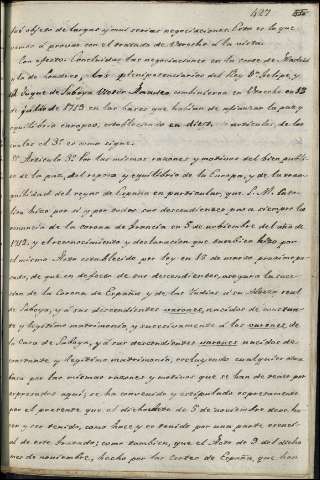 427
fué objeto de largas y muy serias negociaciones. Esto es lo que
vamos á provar con el tratado de Utrecho á la vista.
Con efecto. Concluidas las negociaciones en la corte de Madrid
y la de Londres, los plenipotenciarios del Rey Dn. Felipe, y
el Duque de Saboya Victor Amadeo combinieron en Utrecho en 13
de julio de 1713 en las bases que habian de afianzar la paz y
equilibrio europeo, estableciendo en diez articulos, de los
cuales el 3º es como sigue.
Articulo 3º Por las mismas razones y motivos del bien publi-
co de la paz, del reposo y equilibrio de la Europa, y de la tran-
quilidad del reyno de España en particular, que S. M. Cato-
lica hizo por si, y por todos sus descendientes para siempre la
renuncia de la corona de Francia en 5 de noviembre del año de
1712, y el reconocimiento y declaracion que tambien hizo, por
el mismo Acto establecido por ley en 18 de marzo proximo pa-
sado, de que en defecto de sus descendientes, asegura la succe-
sion de la Corona de España, y de las Yndias á su Alteza real
de Saboya, y á sus descendientes varones, nacidos de constan-
te y legitimo matrimonio, y succesivamente á los varones de
la Casa de Saboya, y á sus descendientes varones nacidos de
constante y legitimo matrimonio, excluyendo cualquier otra
Casa por las mismas razones y motivos que se han de tener por
expresados aqui; se ha convenido y estipulado expresamente
por el presente que el dicho Acto de 5 de noviembre debe ha-
cer y ser tenido, como hace y es tenido por una parte esenci-
al de este tratado; como tambien, que el Acto de 9 del dicho
mes de noviembre, hecho por las Cortes de España, que han